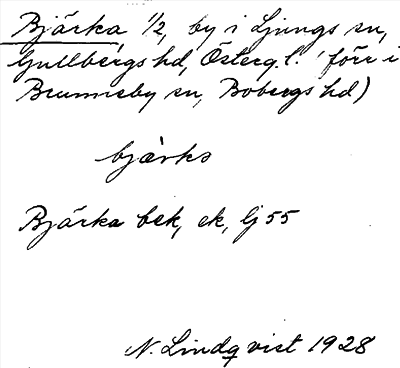 Bjärka 1/2, by i Ljungs sn,
Gullbergs hd, Österg. l. (förr i
Brunneby sn, Bobergs hd)
bjärka
Bjärka bek, ek, Lj 55
N. Lindqvist 1928